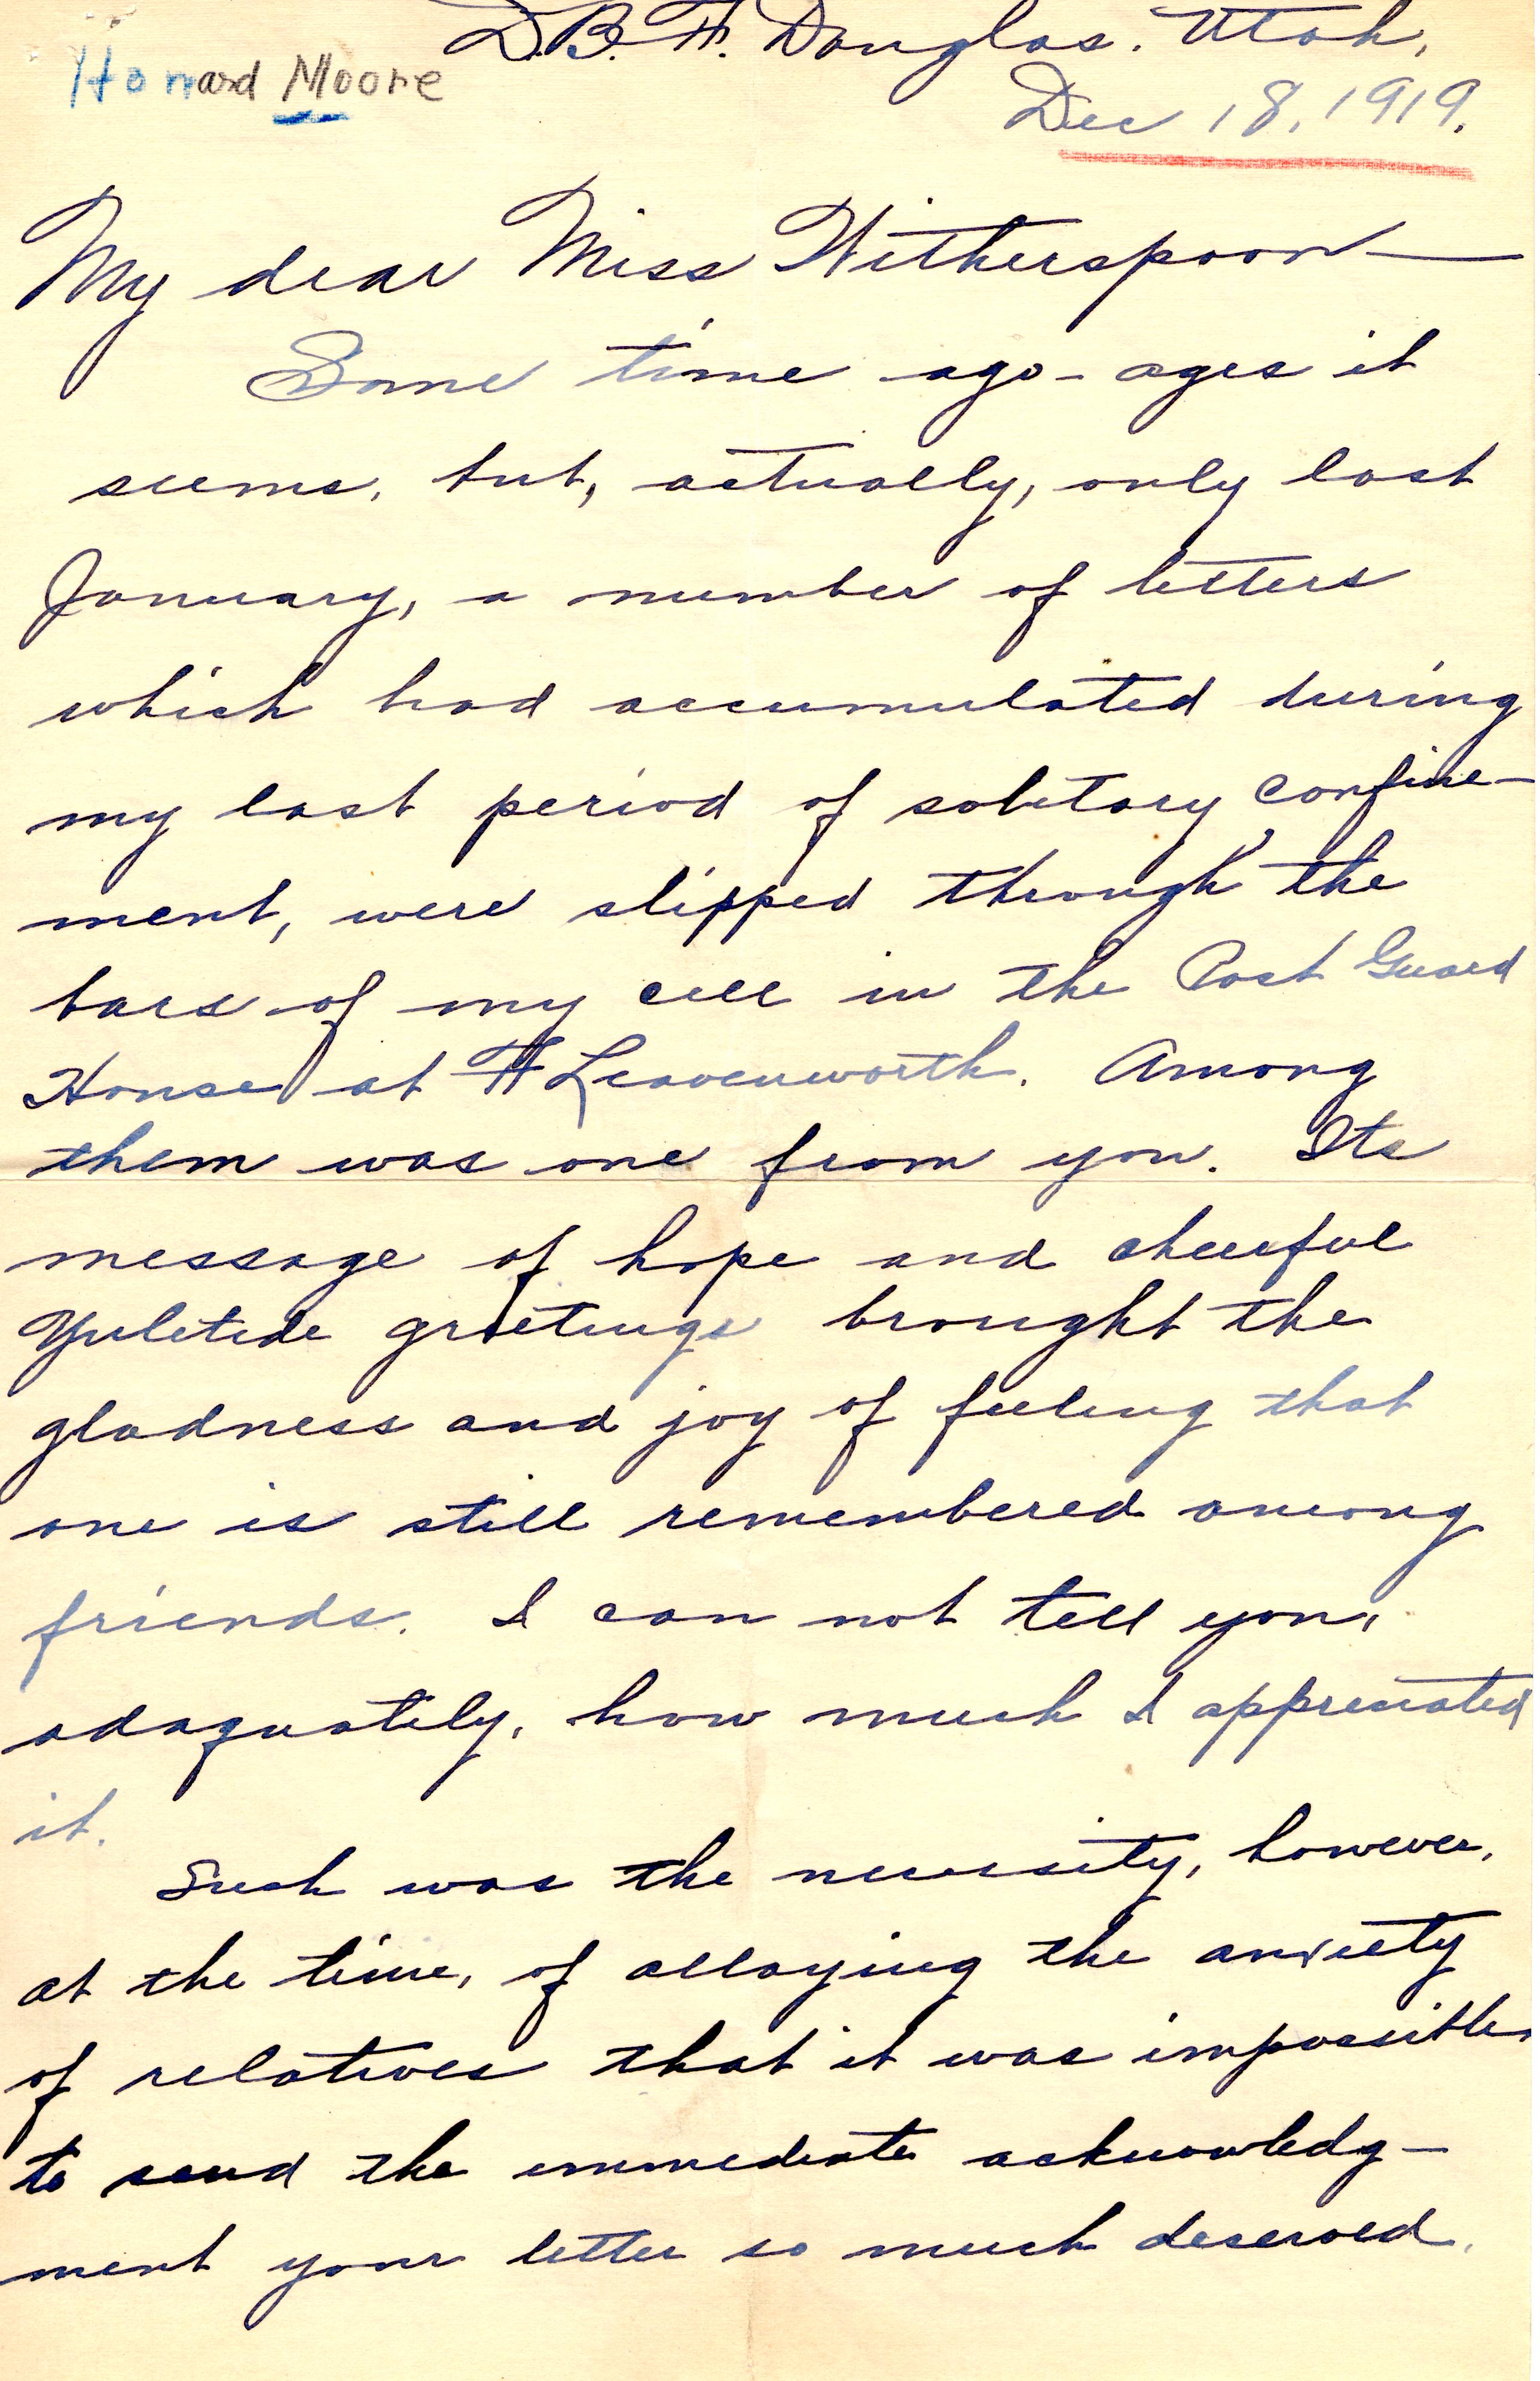 D.B. Ft. Douglas. Utah,
Howard Moore
Dec 18, 1919.
My dear Miss Witherspoon—
Some time ago - ages it
seems, but, actually, only last
January, a number of letters
which had accumulated during
my last period of solitary confine-
ment, were slipped through the
bars of my cell in the Post Guard
House at Ft Leavenworth. Among
them was one from you. Its
message of hope and cheerful
Yuletide greetings brought the
gladness and joy of feeling that
one is still remembered among
friends. I can not tell you,
adaquately, how much I appreciated
it.
Such was the necessity, however,
at the time, of allaying the anxiety
of relatives that it was impossible
to send the immediate acknowledg-
ment your letter so much deserved.